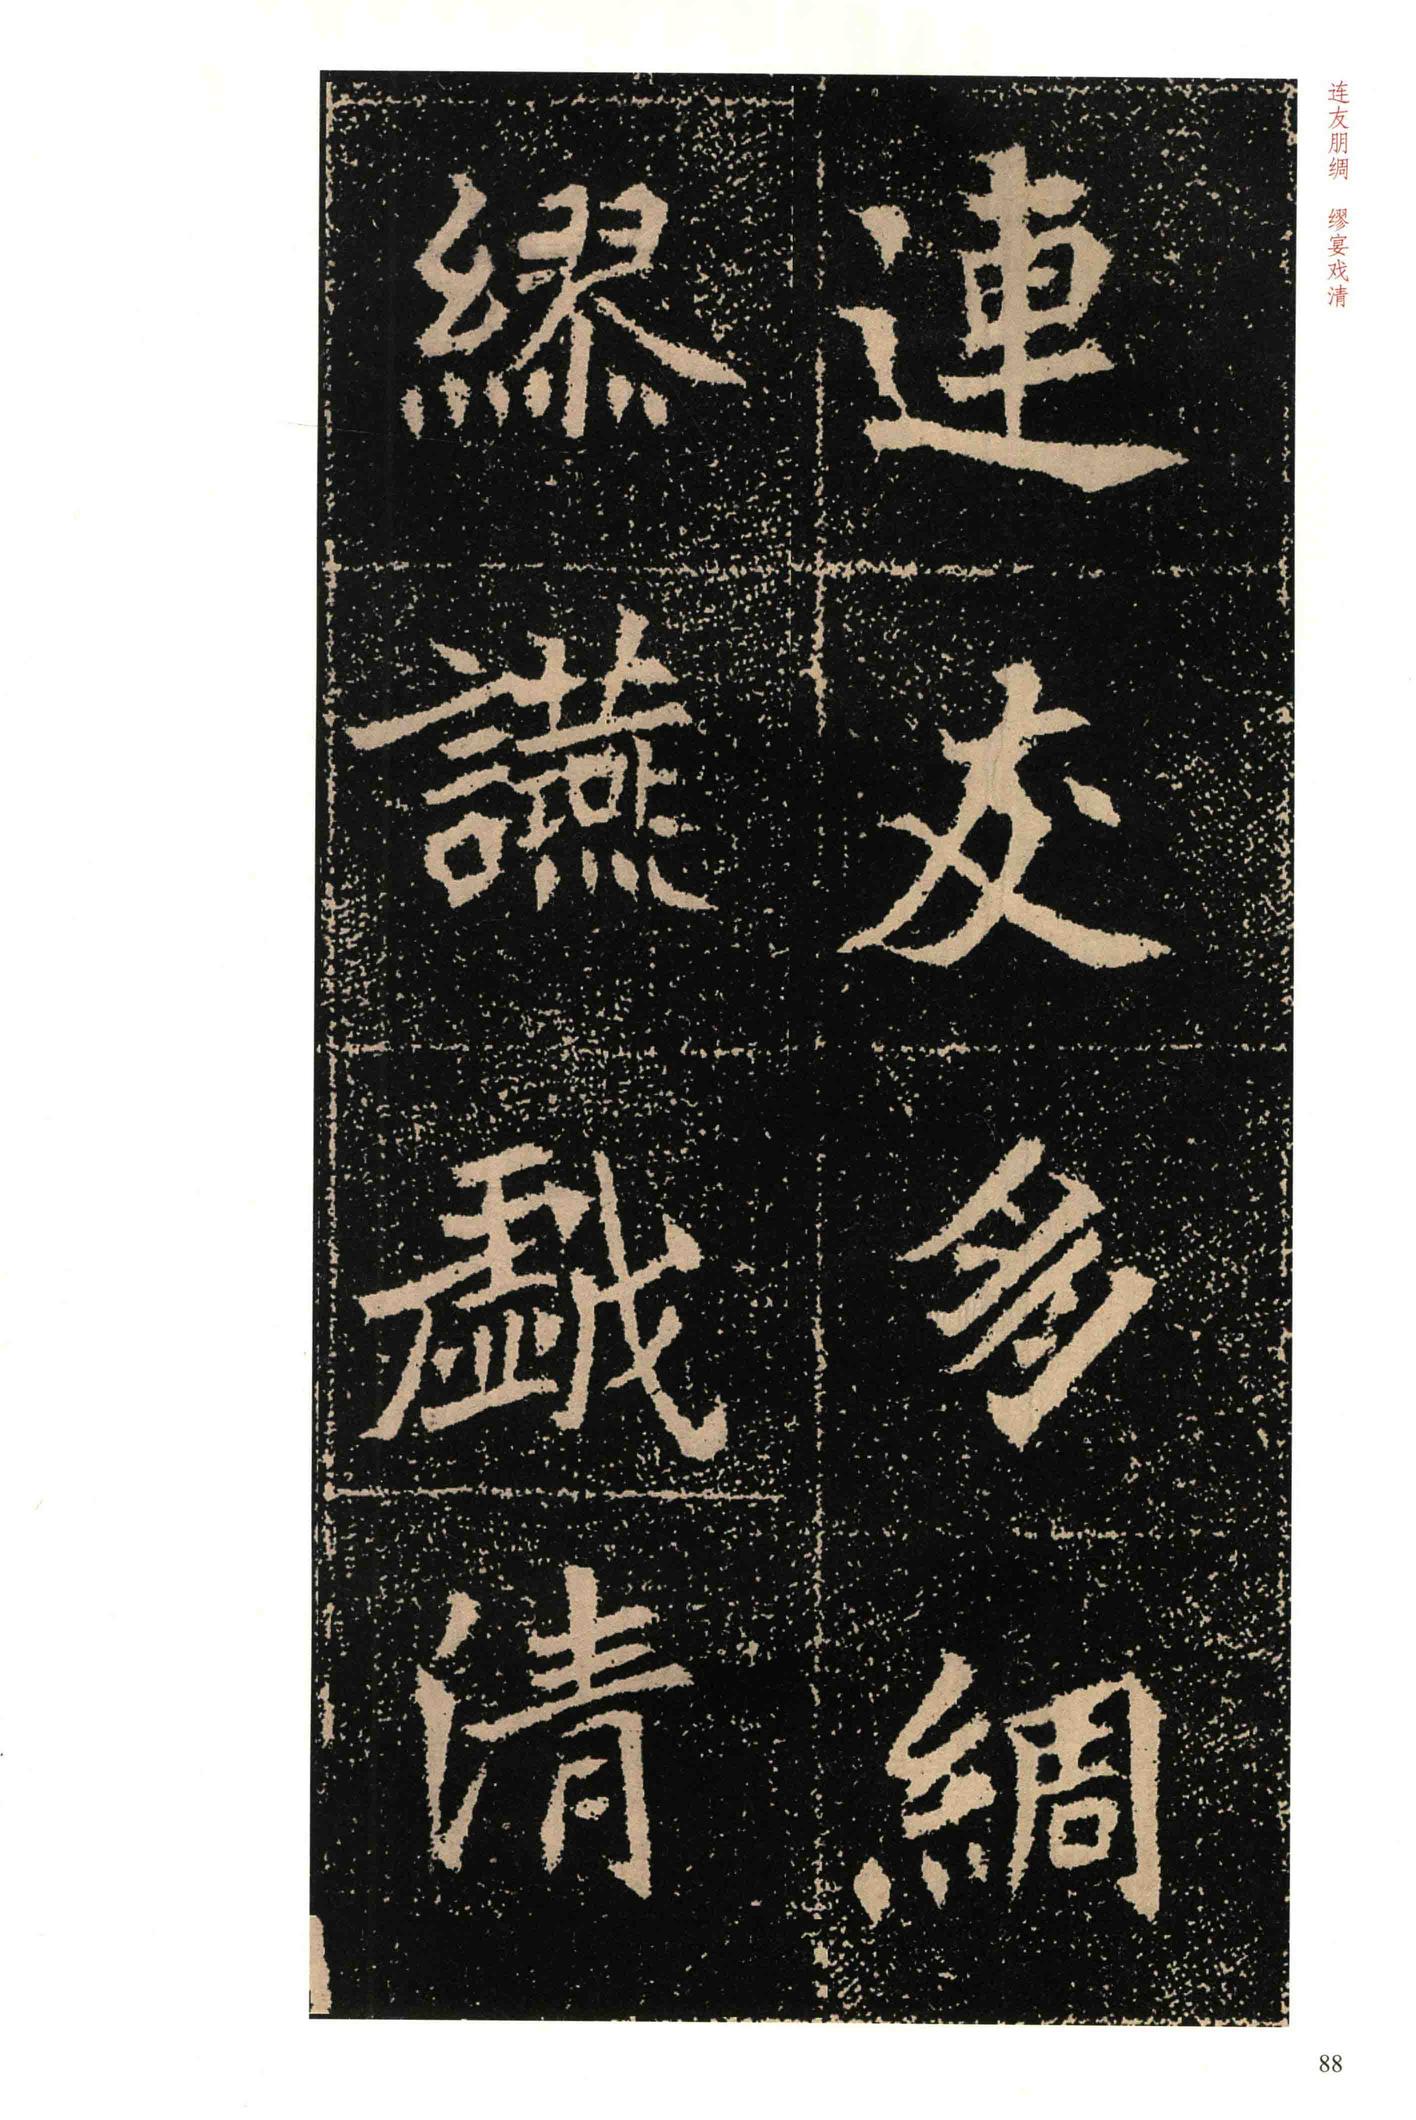 连友朋绸　缪宴戏清
連友朋綢
繆讌戲清
88